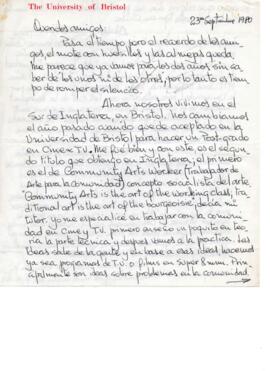 The University of Bristol
23rd Septiembre 1980
Queridos amigos:
Pasa el tiempo pero el recuerdo de los ami-
gos, el monte con y las
Me parece que ya vamos para los dos años sin sa-
ber de los unos ni de los otros, por lo tanto es tiem-
po de romper el silencio.
Ahora nosotros vivimos en el
Sur de Inglaterra, en Bristol. Nos cambiamos
el año pasado cuando quede aceptado en la
Universidad de Bristol para hacer un Postgrado
en Cine & T.V. Me fue bien y con este es el segun-
do título que obtengo en Inglaterra; el primero
es el de Community Arts Worker (Trabajador de
Arte para la Comunidad) concepto socialista del arte
"Community Arts is the art of the working class; tra-
ditional art is the art of the bourgeoisie", decía mi
tutor. Yo me especialicé en trabajar con la comuni-
dad en Cine y T.V. primero enseño un poquito en teo-
ría la parte técnica y despues vamos a la practica. Las
ideas salen de la gente y en base a esas ideas, hacemos
ya sea programas de T.V. o films en super 8 mm. Prin-
cipalmente son ideas sobre problemas en la comunidad.